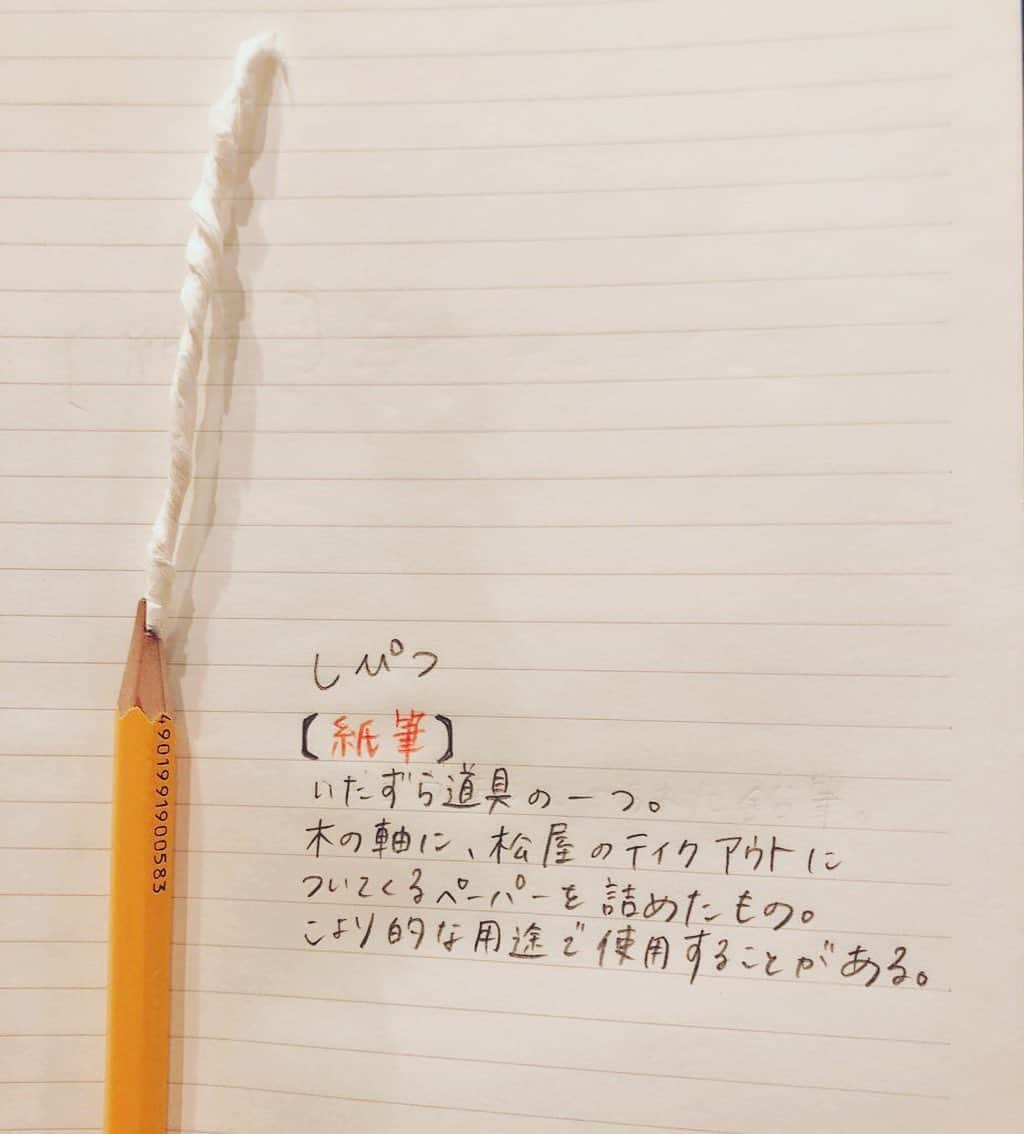 しぴつ
【紙筆】
いたずら道具の一つ。
木の軸に、松屋のテイクアウトに
ついてくるペーパーを詰めたもの。
こより的な用途で使用することがある。
4901991900583